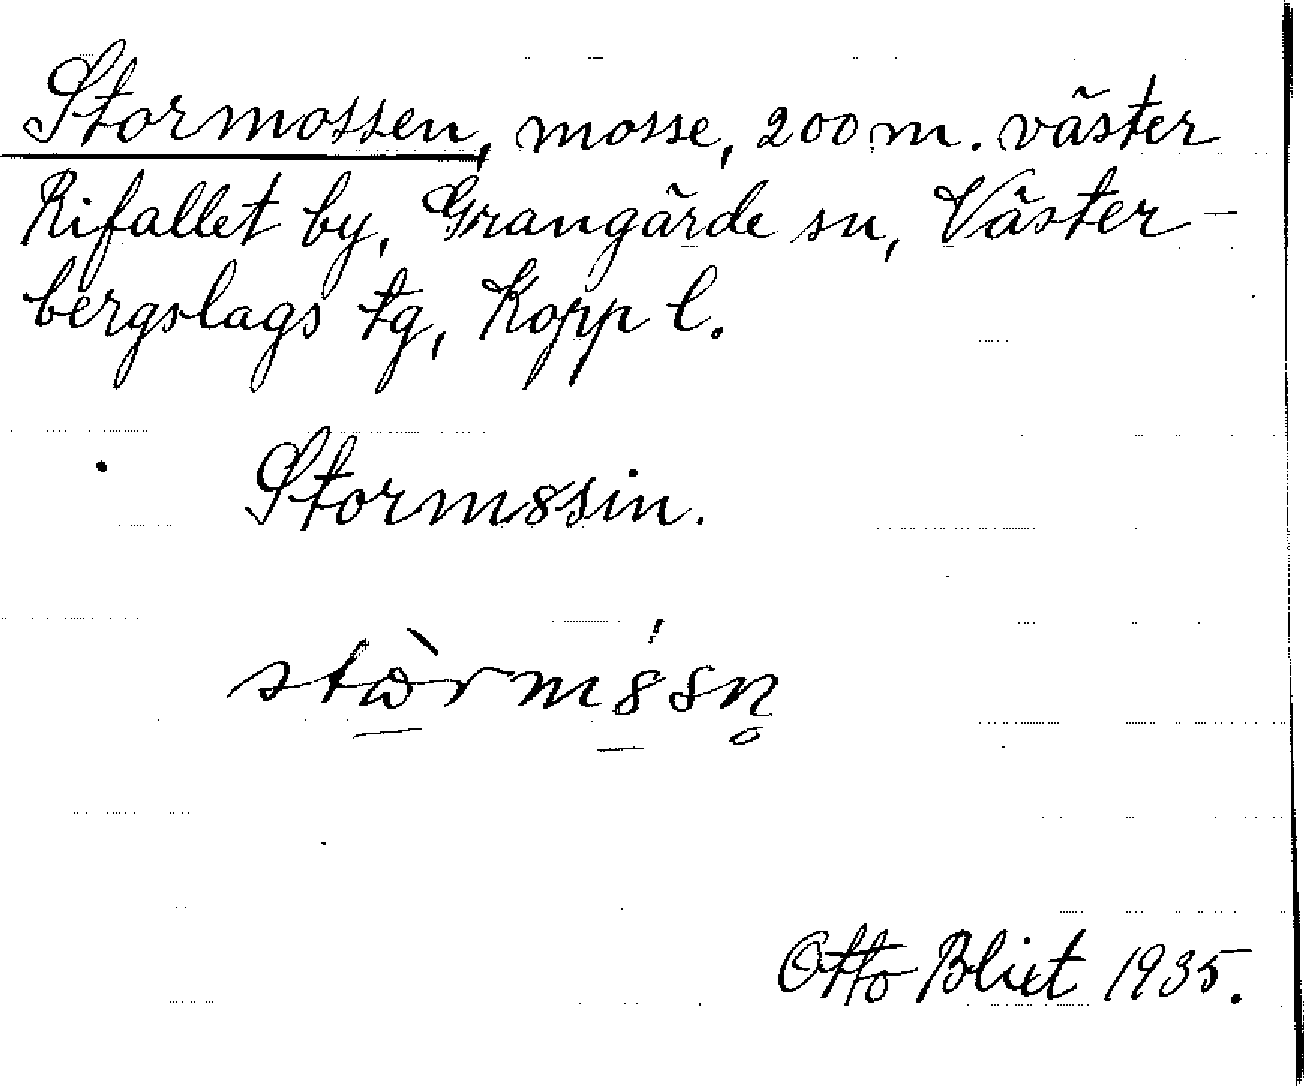 Stormossen, mosse, 200 m. väster
Rifallet by, Grangärde sn, Väster-
bergslags tg, Kopp l.
Stormssin.
Otto Bliet 1935.